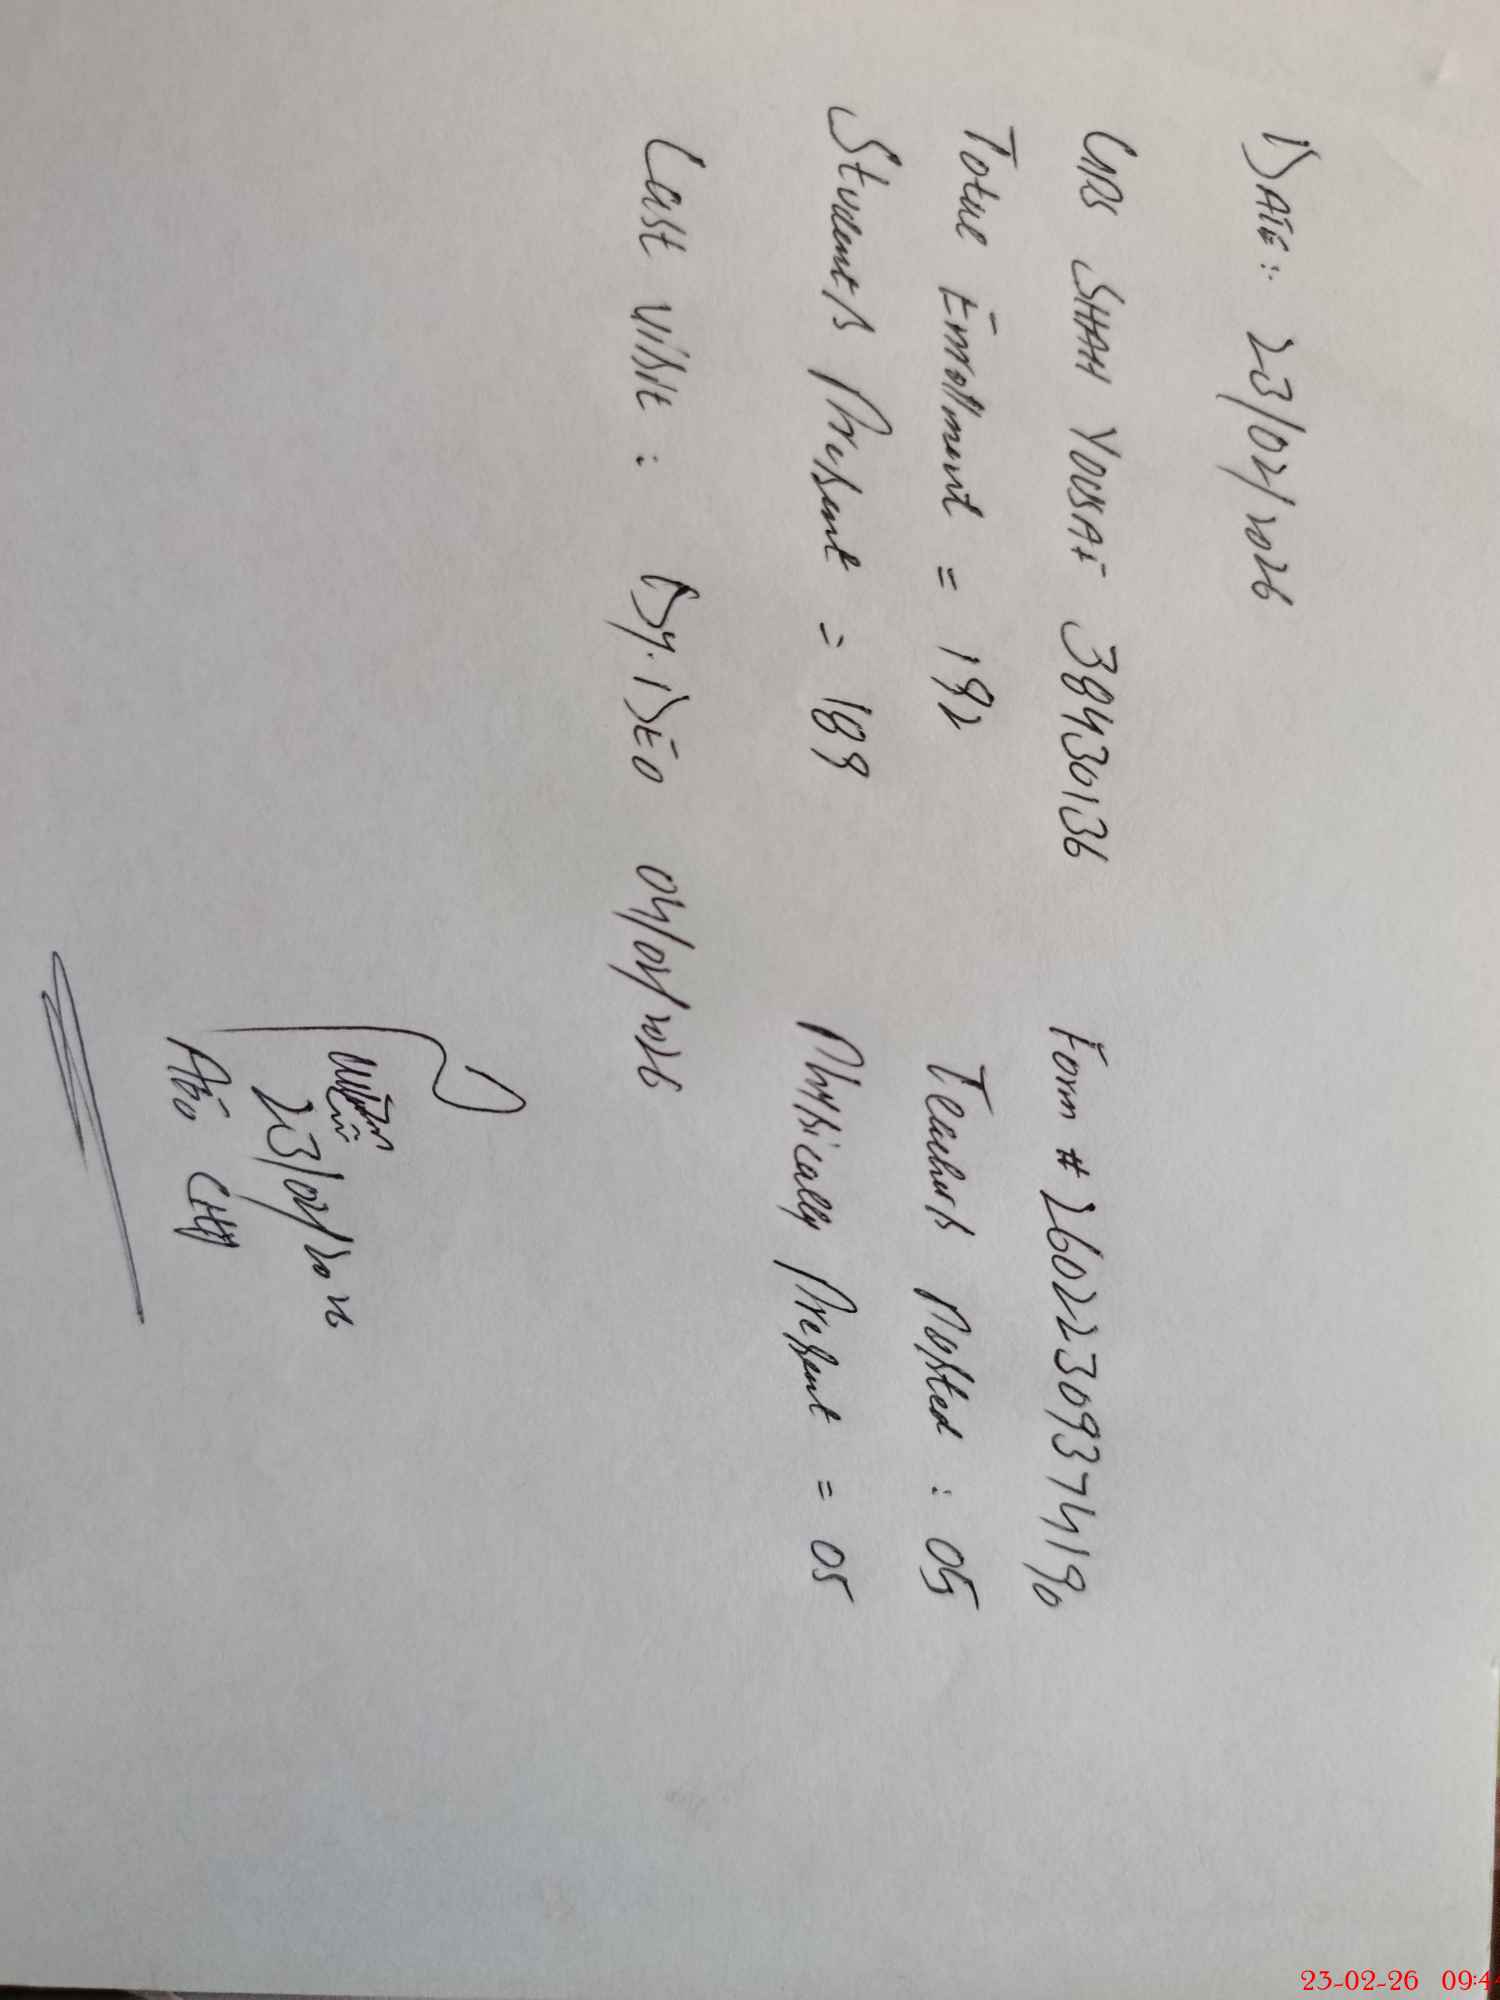 DATE: 23/02/2026
GPS SHAH YOUSAF 38430136 Form # 26022309374190
Total Enrollment = 192 Teachers Posted : 05
Students Present = 189 Physically Present = 05
Last Visit : Dy. DEO 04/02/2026
23/02/2026
AEO
23-02-26 09:4